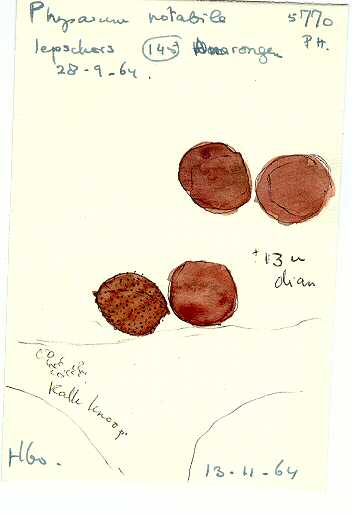 Physarum notabile 5770
lepschors 145 Amarongen P.H.
28-9-64.
± 13 u
diam
Kalk knoop.
Hbo.
13-11-64